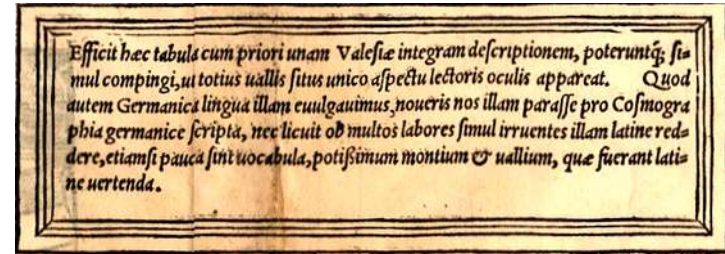 Efficit hæc tabula cum priori unam Valeſiæ integram deſcriptionem, poteruntq́; ſi⸗
mul compingi, ut totius uallis ſitus unico aſpectu lectoris oculis appareat. Quod
autem Germanica lingua illam euulgauimus, noueris nos illam paraſſe pro Coſmogra
phia germanice ſcripta, nec licuit ob multos labores ſimul irruentes illam latine red⸗
dere, etiamſi pauca ſint uocabula, potißimum montium & uallium, quæ fuerant lati⸗
ne uertenda.